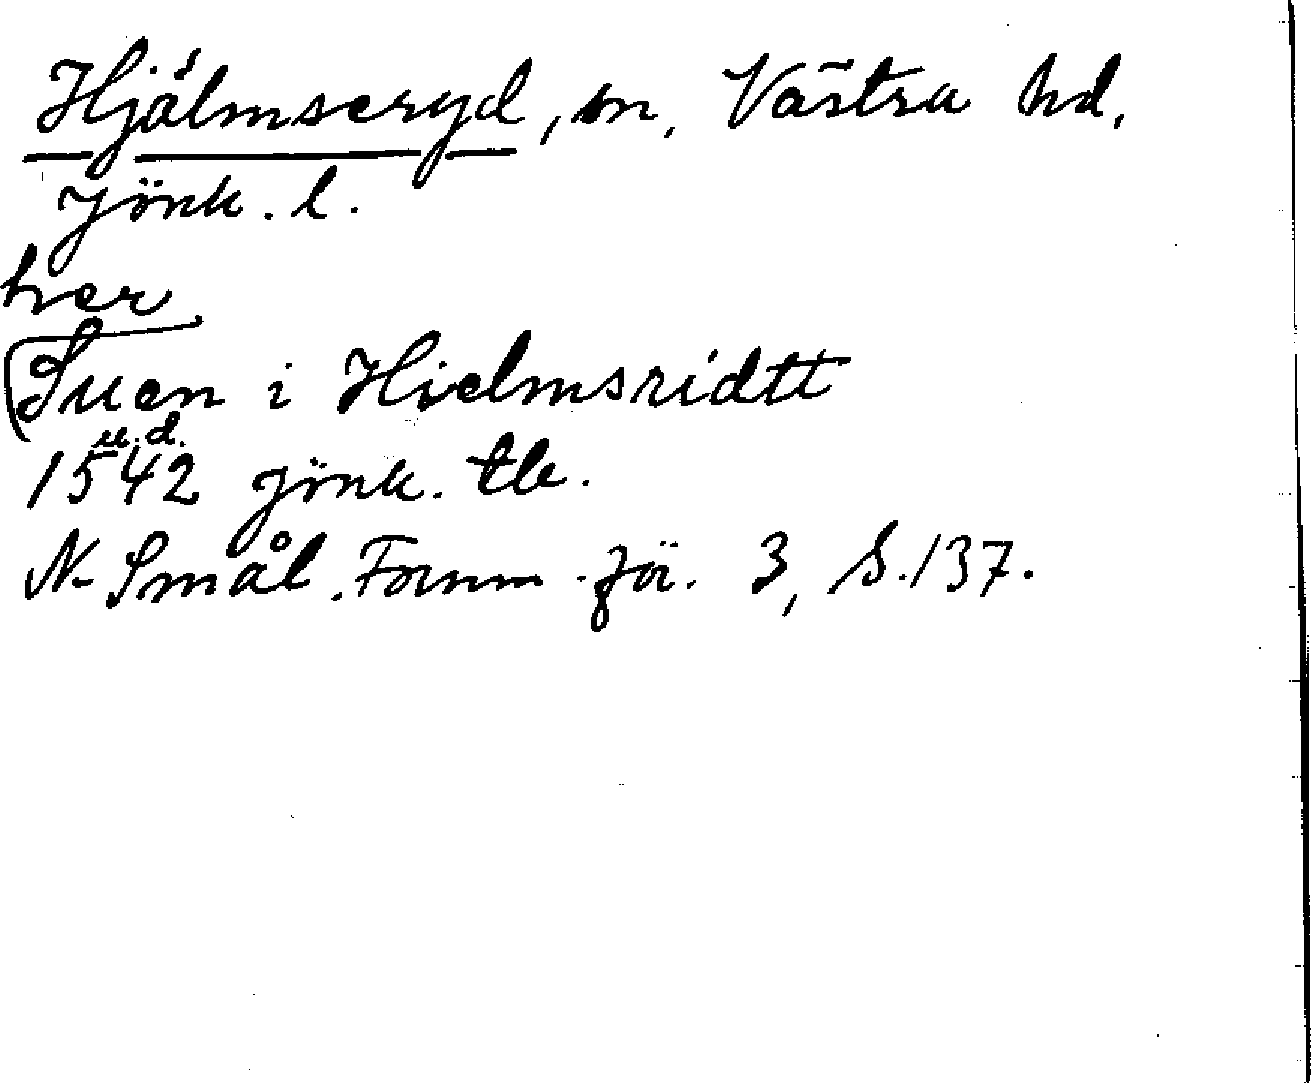 Hjälmseryd, sn, Västra hd,
Jönk. l.
her
Suen i Hielmsridtt
u.d.
1542 Jönk. tb.
N. Smål. Fornm. för. 3, S. 137.